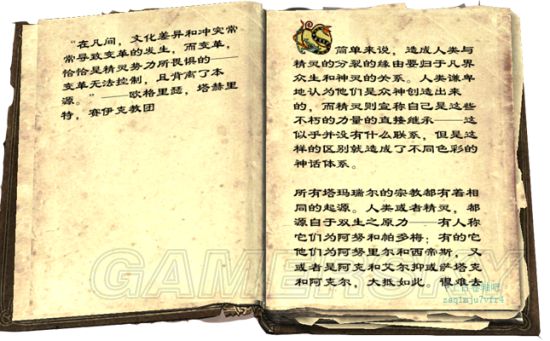 “在凡间，文化差异和冲突常
常导致变革的发生，而变革，
恰恰是精灵势力所畏惧的——
变革无法控制，且背离了本
源。”——欧格里瑟，塔赫里
特，赛伊克教团
简单来说，造成人类与
精灵的分裂的缘由要归于凡界
众生和神灵的关系。人类谦卑
地认为他们是众神创造出来
的，而精灵则宣称自己是这些
不朽的力量的直接继承——这
似乎并没有什么联系，但是这
样的区别就造成了不同色彩的
神话体系。
所有塔玛瑞尔的宗教都有着相
同的起源。人类或者精灵，都
源自于双生之原力——有人称
它们为阿努和帕多梅；有的它
他们为阿努里尔和西帝斯，又
或者是阿克和艾尔抑或萨塔克
和阿克尔，大抵如此。很难去
GAMERSKY
上古卷轴吧
zaq1mju7vfr4